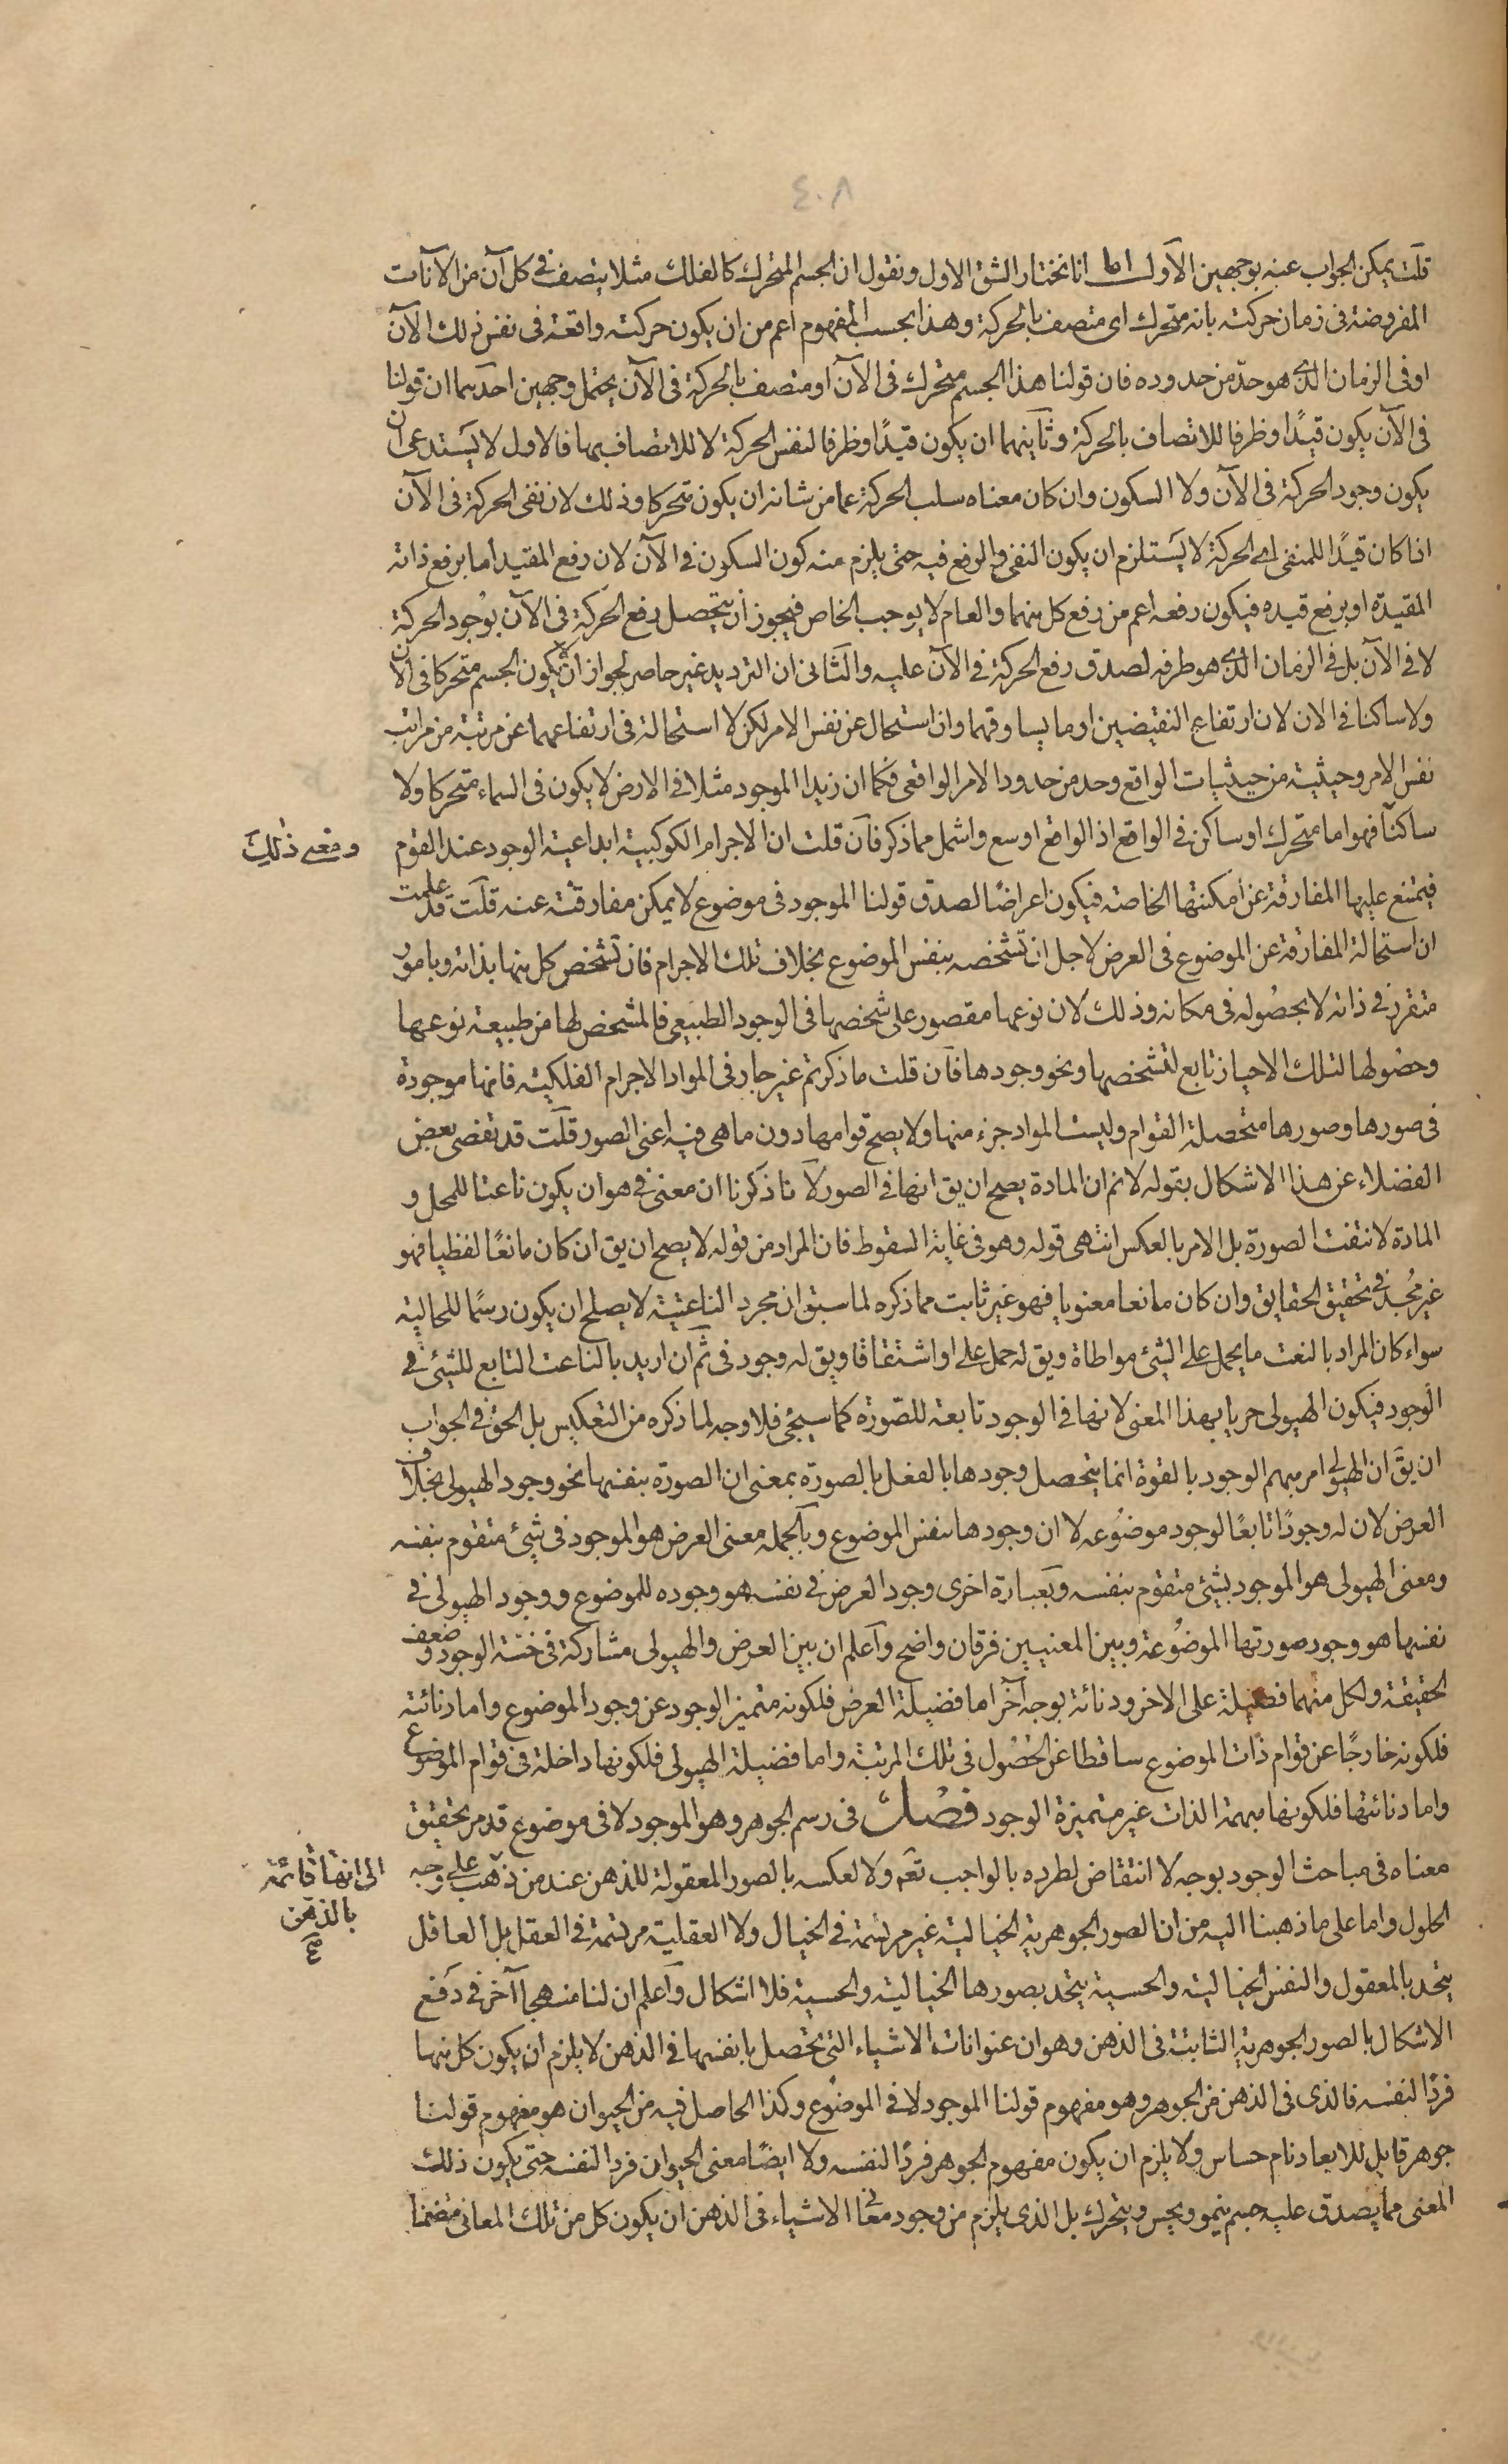 ٤٠٨
قلت يمكن الجواب عنه بوجهين الأول اما انا نختار الشق الاول ونقول ان الجسم المتحرك كالفلك مثلا يتصف في كل آن من الآنات
المفروضة في زمان حركته بانه متحرك اى متصف بالحركة وهذا بحسب المفهوم اعم من ان يكون حركته واقعة في نفس ذلك الآن
او في الزمان الذى هو حدّ من حدوده فان قولنا هذا الجسم متحرك في الآن او متصف بالحركة في الآن يحتمل وجهين احدهما ان قولنا
في الآن يكون قيدًا او ظرفا للاتصاف بالحركة وثانيهما ان يكون قيدًا او ظرفا لنفس الحركة لا للاتصاف بها فالاول لا يستدعى ان
يكون وجود الحركة في الآن ولا السكون وان كان معناه سلب الحركة عما من شانه ان يكون متحركا وذلك لان نفى الحركة في الآن
اذا كان قيدًا للمنفى اى الحركة لا يستلزم ان يكون النفى والرفع فيه حتى يلزم منه كون السكون في الآن لان رفع المقيد اما برفع ذاته
المقيدة او برفع قيده فيكون رفعه اعم من رفع كل منهما والعام لا يوجب الخاص فيجوز أن يتحصل رفع الحركة في الآن بوجود الحركة
لا في الآن بل في الزمان الذى هو طرفه لصدق رفع الحركة في الآن عليه والثانى ان الترديد غير حاصر لجواز ان لا يكون الجسم متحركا في الآن
ولا ساكنا في الان لان ارتفاع النقيضين او ما يساوقهما وان استحال عن نفس الامر لكن لا استحالة في ارتفاعهما عن مرتبة من مراتب
نفس الامر وحيثية من حيثيات الواقع وحد من حدود الامر الواقعى فكما ان زيدا الموجود مثلا في الارض لا يكون في السماء متحركا ولا
ساكنا فهو اما متحرك او ساكن في الواقع اذ الواقع اوسع واشمل مما ذكر فان قلت ان الاجرام الكوكبية ابداعية الوجود عند القوم
ومعنى ذلك
فيمتنع عليها المفارقة عن أمكنتها الخاصة فيكون اعراضًا لصدق قولنا الموجود في موضوع لا يمكن مفارقته عنه قلت قد علمت
ان استحالة المفارقة عن الموضوع في العرض لاجل ان تشخصه بنفس الموضوع بخلاف تلك الاجرام فان تشخص كل منها بذاته وبامور
متقرر في ذاته لا بحصوله في مكانه وذلك لان نوعها مقصور على شخصها في الوجود الطبيعى فالمشخص لها من طبيعة نوعها
وحصولها لتلك الاحياز تابع لتشخصها ونحو وجودها فان قلت ما ذكرتم غير جار في المواد الاجرام الفلكية فانها موجودة
في صورها وصورها متحصلة القوام وليست المواد جزء منها ولا يصح قوامها دون ما هى فيه اعنى الصور قلت قد تفصى بعض
الفضلاء عن هذا الاشكال بقوله لا نم ان المادة يصح ان يق انها في الصور لانا ذكرنا ان معنى في هو ان يكون ناعتا للمحل و
المادة لا تنعت الصورة بل الامر بالعكس انتهى قوله وهو في غاية السقوط فان المراد من قوله لا يصح ان يق ان كان مانعًا لفظيا فهو
غير مُجد في تحقيق الحقايق وان كان مانعا معنويا فهو غير ثابت مما ذكره لما سبق ان مجرد الناعتية لا يصلح ان يكون رسمًا للحالية
سواء كان المراد بالنعت ما يحمل على الشئ مواطاة ويق له حمل على او اشتقاقا ويق له وجود في ثم ان اريد بالناعت التابع للشئ في
الوجود فيكون الهيولى حريا بهذا المعنى لانها في الوجود تابعة للصّورة كما سيجئ فلا وجه لما ذكره من التعكيس بل الحق في الجواب
ان يق ان الهيولى امر مبهم الوجود بالقوة انما يتحصل وجودها بالفعل بالصورة بمعنى ان الصورة بنفسها نحو وجود الهيولى بخلاف
العرض لان له وجودًا تابعًا لوجود موضوعه لا ان وجودها بنفس الموضوع وبالجملة معنى العرض هو الموجود في شئ متقوم بنفسه
ومعنى الهيولى هو الموجود بشئ متقوم بنفسه وبعبارة اخرى وجود العرض في نفسه هو وجوده للموضوع ووجود الهيولى في
نفسها هو وجود صورتها الموضوعة وبين المعنيين فرقان واضح واعلم ان بين العرض والهيولى مشاركة في خسّة الوجود وضعف
الحقيقة ولكل منهما فضيلة على الاخر ودنائة بوجه آخر اما فضيلة العرض فلكونه متميز الوجود عن وجود الموضوع واما دنائته
فلكونه خارجًا عن قوام ذات الموضوع ساقطا عن الحصُول في تلك المرتبة واما فضيلة الهيولى فلكونها داخلة في قوام الموضوع
واما دنائتها فلكونها مبهمة الذات غير متميزة الوجود فصل في رسم الجوهر وهو الموجود لا في موضوع قد مر تحقيق
معناه في مباحث الوجود بوجه لا انتقاض لطرده بالواجب تعم ولا لعكسه بالصور المعقولة للذهن عند من ذهب على وجه
الى انها قائمة
بالذهن
صح
الحلول واما على ما ذهبنا اليه من ان الصور الجوهرية الخيالية غير مرتسمة في الخيال ولا العقلية مرتسمة في العقل بل العاقل
يتحد بالمعقول والنفس الخيالية والحسية يتحد بصورها الخيالية والحسية فلا اشكال واعلم ان لنا منهجا آخر في دفع
الاشكال بالصور الجوهرية الثابتة في الذهن وهو ان عنوانات الاشياء التى تحصل بانفسها في الذهن لا يلزم ان يكون كل منها
فردًا لنفسه فالذى في الذهن من الجوهر وهو مفهوم قولنا الموجود لا في الموضوع وكذا الحاصل فيه من الحيوان هو مفهوم قولنا
جوهر قابل للابعاد نام حساس ولا يلزم ان يكون مفهوم الجوهر فردًا لنفسه ولا ايضًا معنى الحيوان فردا لنفسه حتى يكون ذلك
المعنى مما يصدق عليه جسم ينمو ويحس ويتحرك بل الذى يلزم من وجود معانى الاشياء في الذهن ان يكون كل من تلك المعانى متضمنا